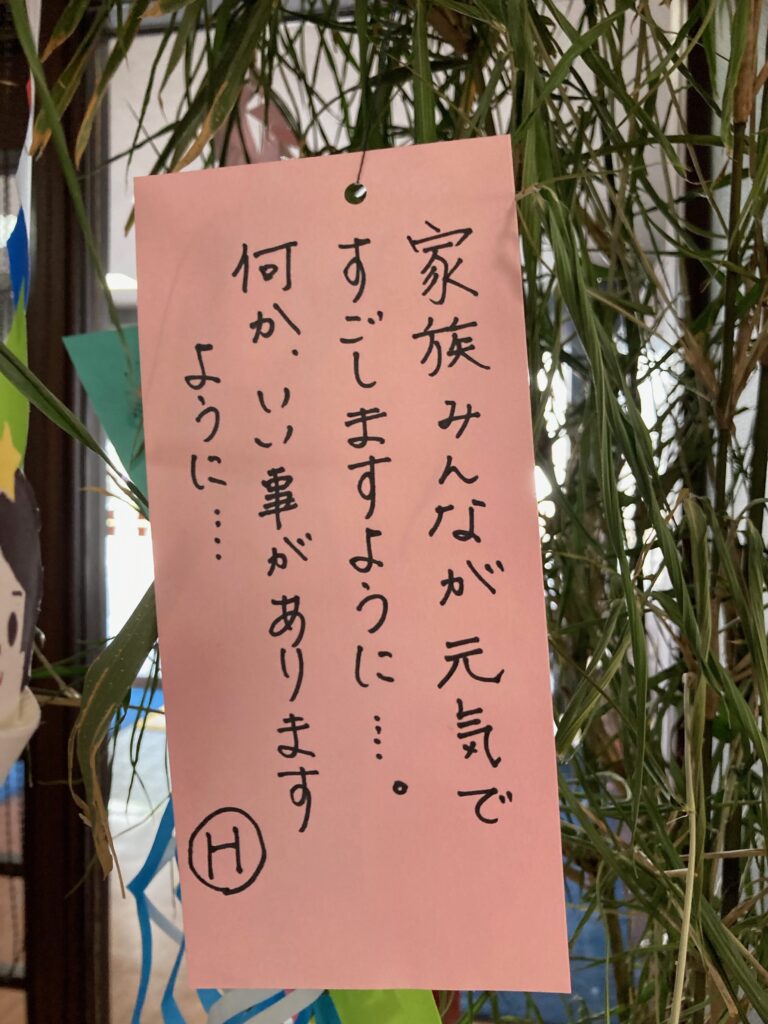 家族みんなが元気で
すごしますように….。
何か、いい事があります
ように….
H